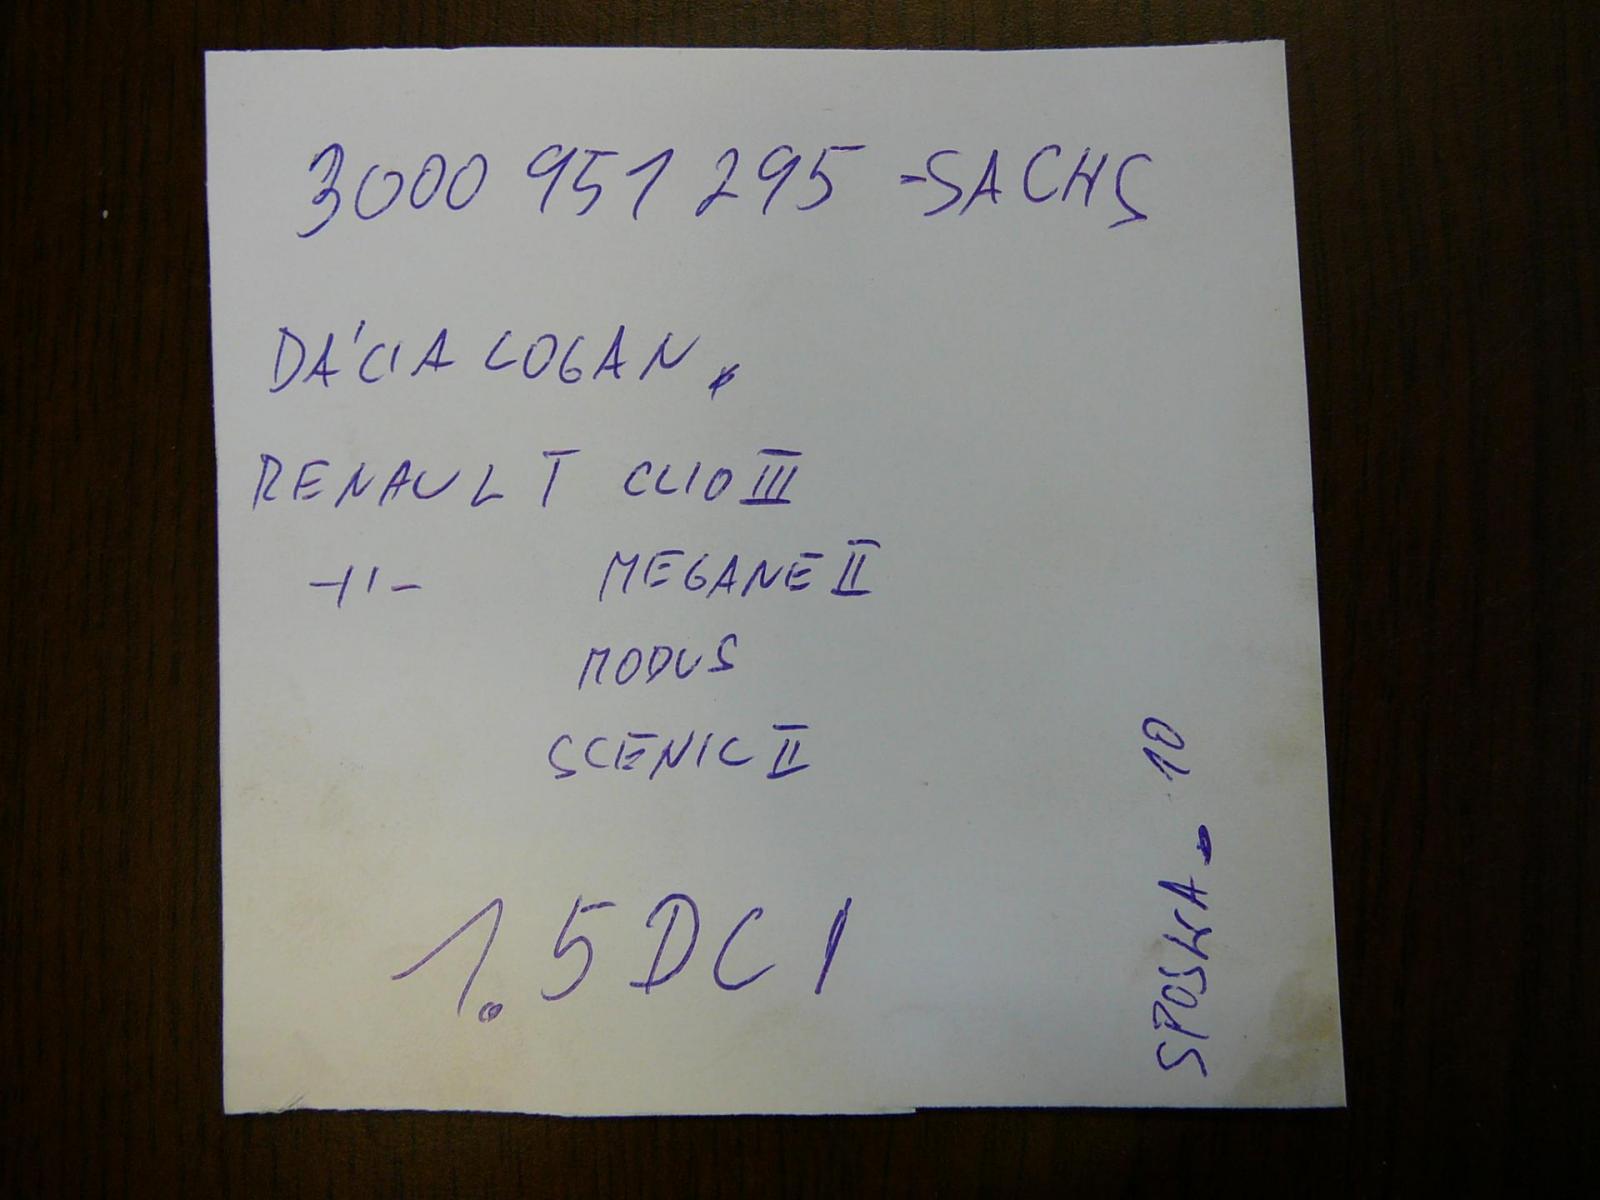 3000 951 295 -SACHS
DÁCIA LOGAN.
RENAULT CLIO III
-11- MEGANE II
MODUS
SCENIC II
1.5 DCI
SPOJKA - 10